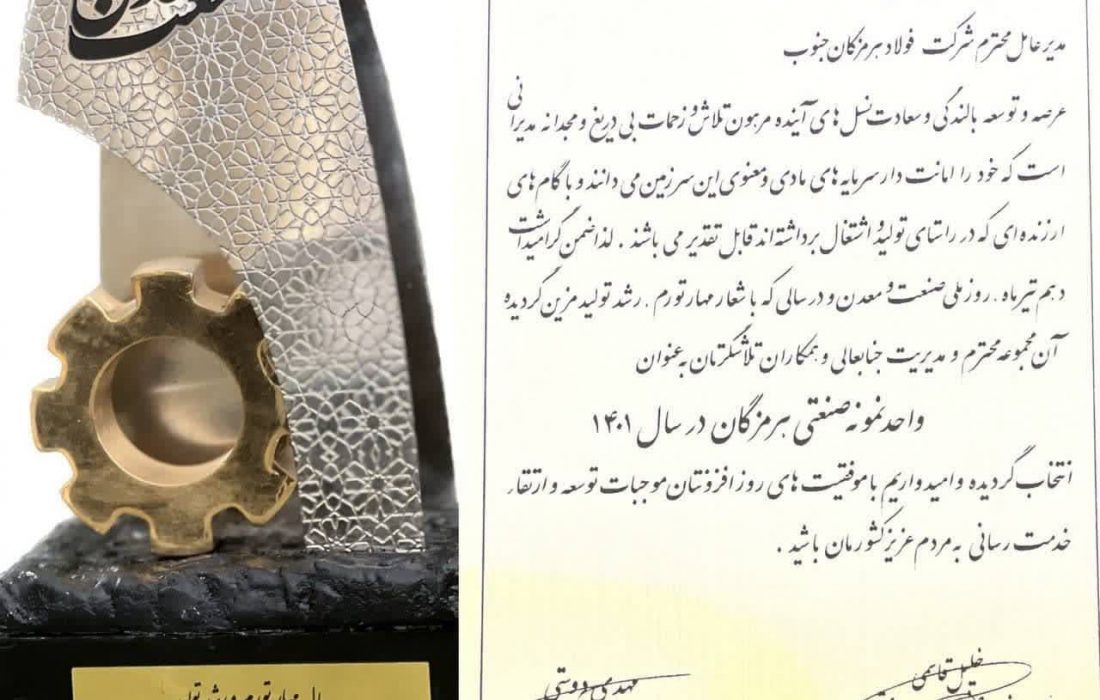 مدیرعامل محترم شرکت فولاد هرمزگان جنوب
عرصه و توسعه بالندگی و سعادت نسل های آینده مرهون تلاش و زحمات بی دریغ و مجدانه مدیرانی
است که خود را امانت دار سرمایه های مادی و معنوی این سرزمین می دانند و با گام های
ارزنده ای که در راستای تولید و اشتغال برداشته اند قابل تقدیر می باشند . لذا ضمن گرامیداشت
دهم تیرماه . روز ملی صنعت و معدن و در سالی که با شعار مهار تورم . رشد تولید مزین گردیده
آن مجموعه محترم و مدیریت جنابعالی و همکاران تلاشگرتان به عنوان
واحد نمونه صنعتی هرمزگان در سال ۱۴۰۱
انتخاب گردیده و امید واریم با موفقیت های روز افزونتان موجبات توسعه و ارتقاء
خدمت رسانی به مردم عزیز کشورمان باشید .
خلیل قاسمی
مهدی دوستی